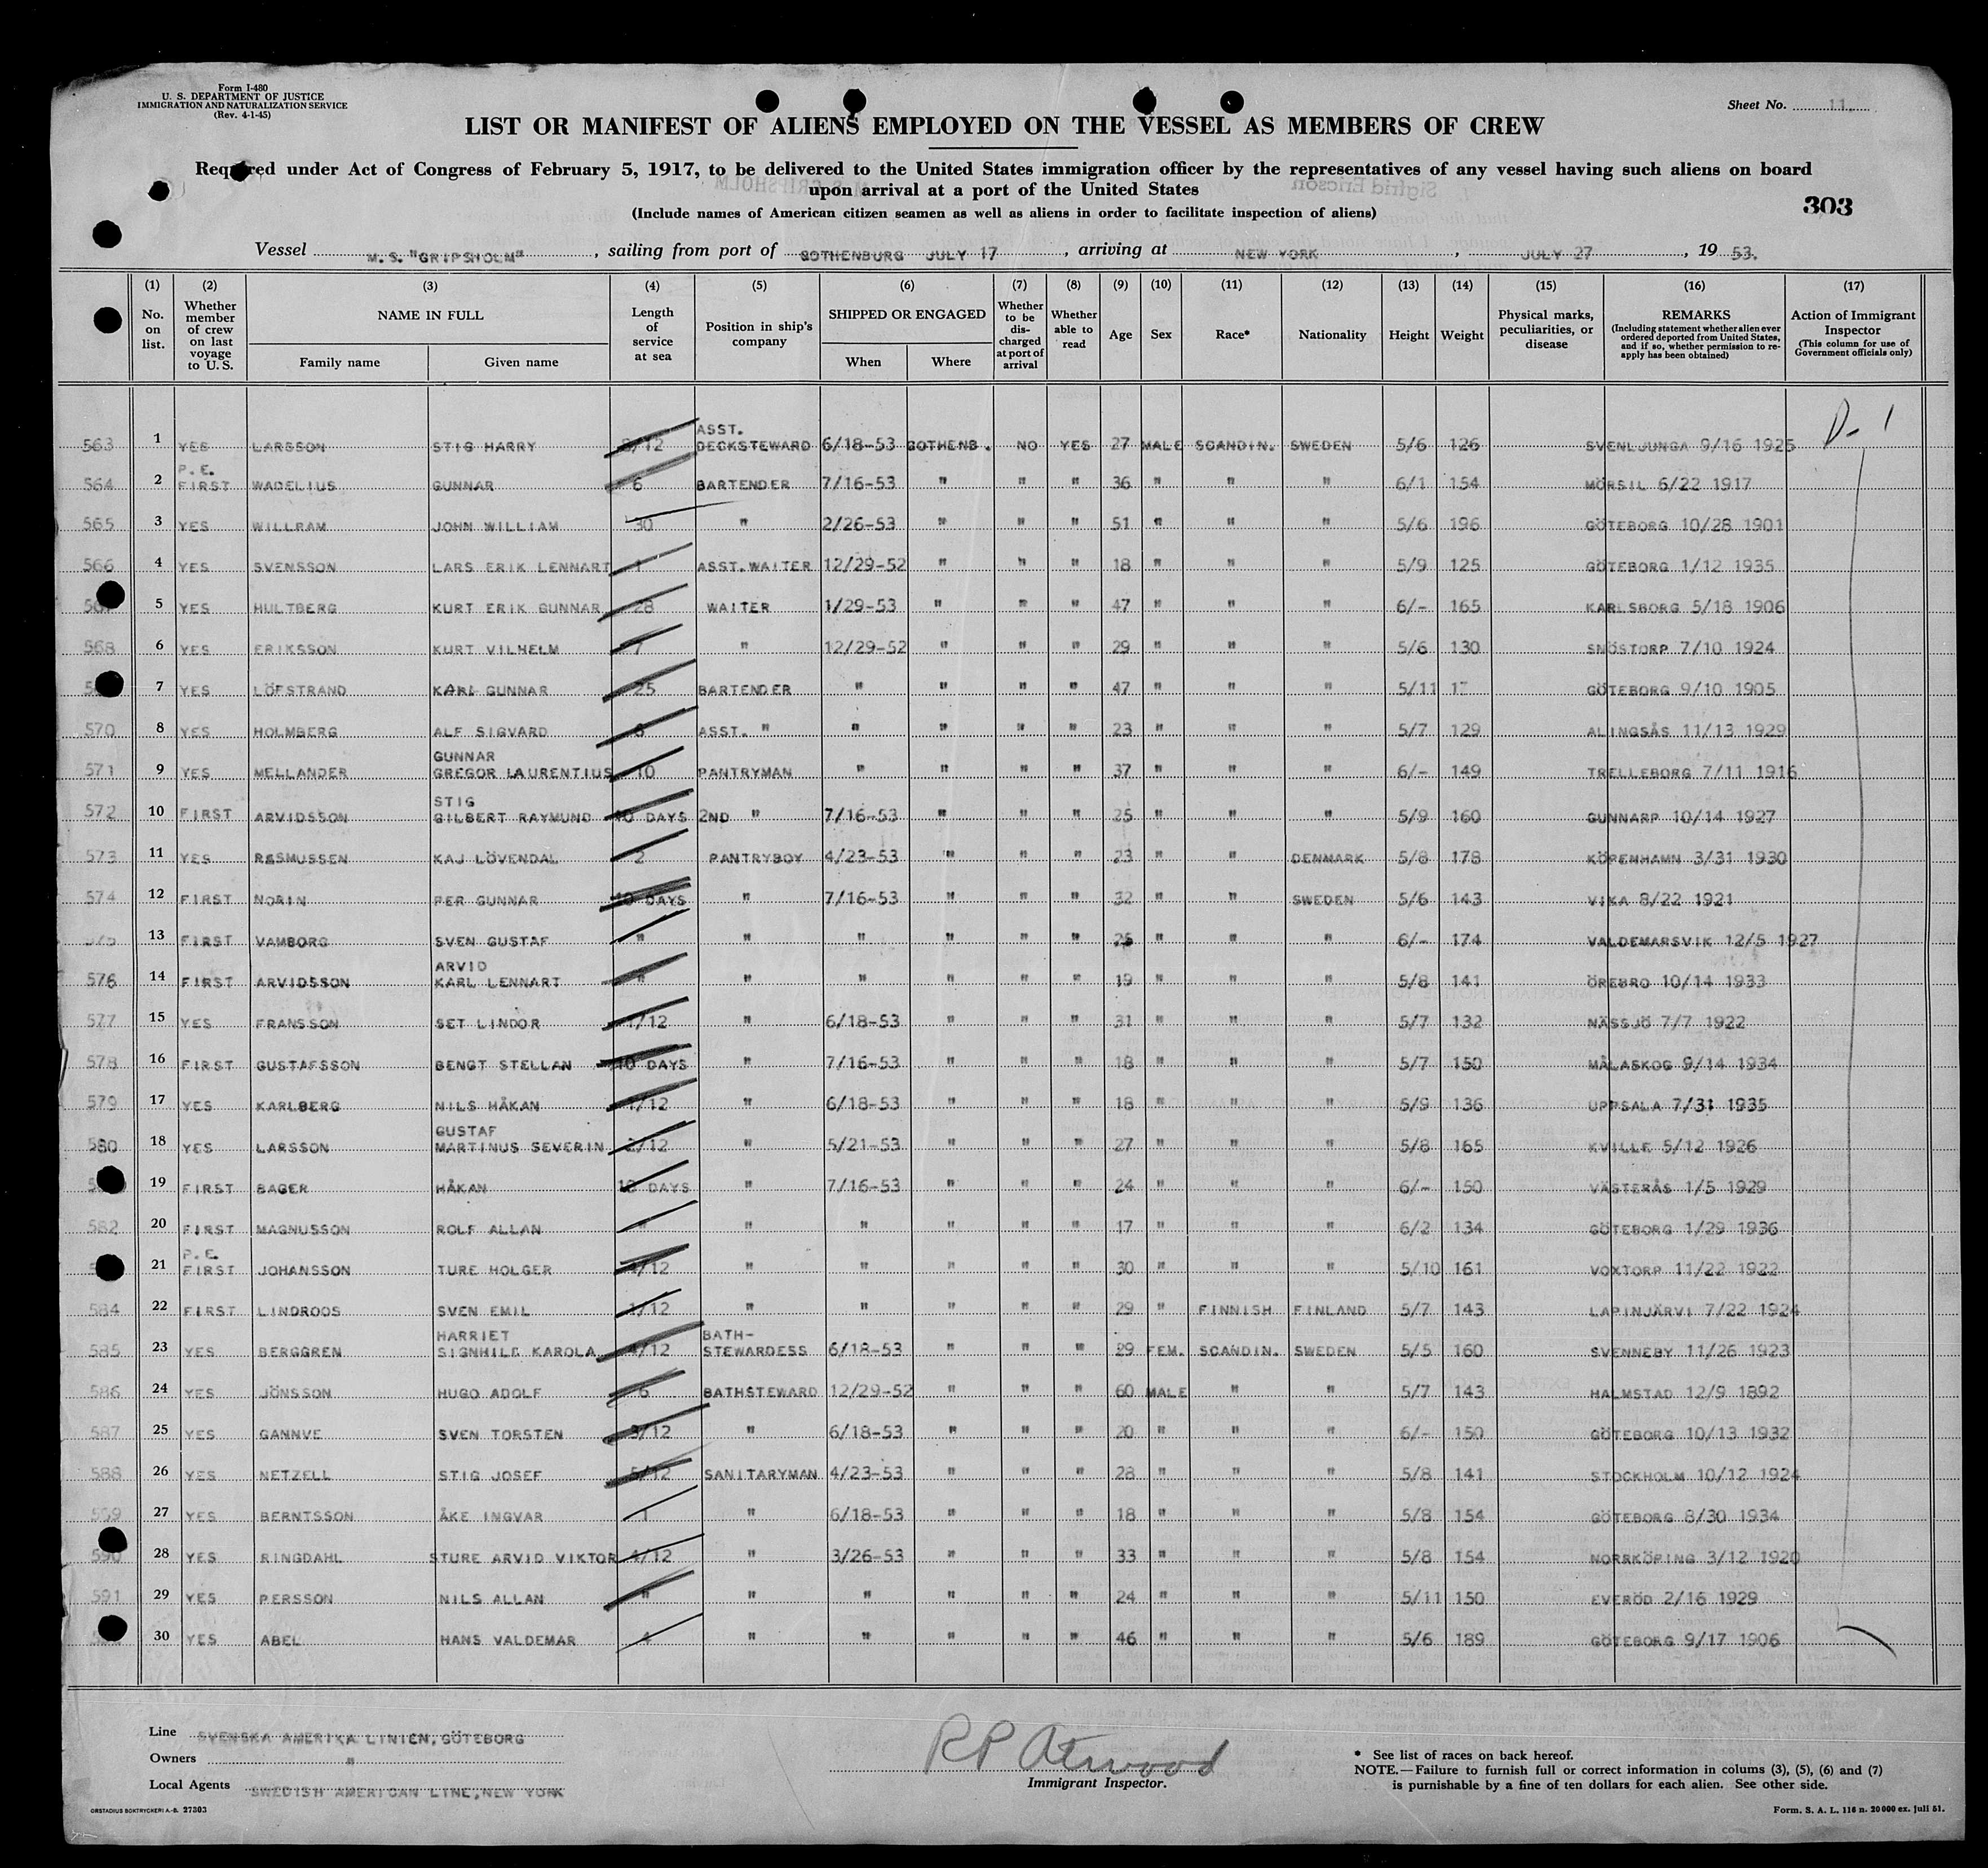 Form I-480
U. S. DEPARTMENT OF JUSTICE
IMMIGRATION AND NATURALIZATION SERVICE
(Rev. 4-1-45)
Sheet No. 11.
LIST OR MANIFEST OF ALIENS EMPLOYED ON THE VESSEL AS MEMBERS OF CREW
Required under Act of Congress of February 5, 1917, to be delivered to the United States immigration officer by the representatives of any vessel having such aliens on board
upon arrival at a port of the United States
(Include names of American citizen seamen as well as aliens in order to facilitate inspection of aliens)
303
Vessel M.S. "GRIPSHOLM", sailing from port of GOTHENBURG JULY 17, arriving at NEW YORK, JULY 27, 1953.
(1) No. on list. (2) Whether member of crew on last voyage to U. S. (3) NAME IN FULL Family name Given name (4) Length of service at sea (5) Position in ship's company (6) SHIPPED OR ENGAGED When Where (7) Whether to be discharged at port of arrival (8) Whether able to read (9) Age (10) Sex (11) Race* (12) Nationality (13) Height (14) Weight (15) Physical marks, peculiarities, or disease (16) REMARKS (Including statement whether alien ever ordered deported from United States, and if so, whether permission to re-apply has been obtained) (17) Action of Immigrant Inspector (This column for use of Government officials only)
563 1 YES LARSSON STIG HARRY /12 ASST. DECKSTEWARD 6/18-53 GOTHENB. NO YES 27 MALE SCANDIN. SWEDEN 5/6 126 SVENLJUNGA 9/16 1925
564 2 P.E. FIRST WADELIUS GUNNAR 6 BARTENDER 7/16-53 " " " 36 " " " 6/1 154 MÖRSIL 6/22 1917
565 3 YES WILLRAM JOHN WILLIAM 30 " 2/26-53 " " " 51 " " " 5/6 196 GÖTEBORG 10/28 1901
566 4 YES SVENSSON LARS ERIK LENNART 1 ASST.WAITER 12/29-52 " " " 18 " " " 5/9 125 GÖTEBORG 1/12 1935
5 YES HULTBERG KURT ERIK GUNNAR 28 WAITER 1/29-53 " " " 47 " " " 6/- 165 KARLSBORG 5/18 1906
568 6 YES ERIKSSON KURT VILHELM 7 " 12/29-52 " " " 29 " " " 5/6 130 SNÖSTORP 7/10 1924
7 YES LÖFSTRAND KARL GUNNAR 25 BARTENDER " " " " 47 " " " 5/11 17 GÖTEBORG 9/10 1905
570 8 YES HOLMBERG ALF SIGVARD 6 ASST. " " " " " 23 " " " 5/7 129 ALINGSÅS 11/13 1929
571 9 YES MELLANDER GUNNAR GREGOR LAURENTIUS 10 PANTRYMAN " " " " 37 " " " 6/- 149 TRELLEBORG 7/11 1916
572 10 FIRST ARVIDSSON STIG GILBERT RAYMUND 10 DAYS 2ND " 7/16-53 " " " 25 " " " 5/9 160 GUNNARP 10/14 1927
573 11 YES RASMUSSEN KAJ LÖVENDAL 2 PANTRYBOY 4/23-53 " " " 23 " " DENMARK 5/8 178 KÖPENHAMN 3/31 1930
574 12 FIRST NORIN PER GUNNAR 10 DAYS " 7/16-53 " " " 32 " " SWEDEN 5/6 143 VIKA 8/22 1921
575 13 FIRST VAMBORG SVEN GUSTAF " " " " " " 25 " " " 6/- 174 VALDEMARSVIK 12/5 1927
576 14 FIRST ARVIDSSON ARVID KARL LENNART " " " " " " 19 " " " 5/8 141 ÖREBRO 10/14 1933
577 15 YES FRANSSON SET LINDOR 1/12 " 6/18-53 " " " 31 " " " 5/7 132 NÄSSJÖ 7/7 1922
578 16 FIRST GUSTAFSSON BENGT STELLAN 10 DAYS " 7/16-53 " " " 18 " " " 5/7 150 MÅLASKOG 9/14 1934
579 17 YES KARLBERG NILS HÅKAN 1/12 " 6/18-53 " " " 18 " " " 5/9 136 UPPSALA 7/31 1935
580 18 YES LARSSON GUSTAF MARTINUS SEVERIN 2/12 " 5/21-53 " " " 27 " " " 5/8 165 KVILLE 5/12 1926
19 FIRST BAGER HÅKAN 10 DAYS " 7/16-53 " " " 24 " " " 6/- 150 VÄSTERÅS 1/5 1929
582 20 FIRST MAGNUSSON ROLF ALLAN " " " " " " 17 " " " 6/2 134 GÖTEBORG 1/29 1936
21 P.E. FIRST JOHANSSON TURE HOLGER /12 " " " " " 30 " " " 5/10 161 VOXTORP 11/22 1922
584 22 FIRST LINDROOS SVEN EMIL 1/12 " " " " " 29 " FINNISH FINLAND 5/7 143 LAPINJÄRVI 7/22 1924
585 23 YES BERGGREN HARRIET SIGNHILD KAROLA 4/12 BATH-STEWARDESS 6/18-53 " " " 29 FEM. SCANDIN. SWEDEN 5/5 160 SVENNEBY 11/26 1923
586 24 YES JÖNSSON HUGO ADOLF 6 BATHSTEWARD 12/29-52 " " " 60 MALE " " 5/7 143 HALMSTAD 12/9 1892
587 25 YES GANNVE SVEN TORSTEN 3/12 " 6/18-53 " " " 20 " " " 6/- 150 GÖTEBORG 10/13 1932
588 26 YES NETZELL STIG JOSEF 5/12 SANITARYMAN 4/23-53 " " " 28 " " " 5/8 141 STOCKHOLM 10/12 1924
27 YES BERNTSSON ÅKE INGVAR 1 " 6/18-53 " " " 18 " " " 5/8 154 GÖTEBORG 8/30 1934
590 28 YES RINGDAHL STURE ARVID VIKTOR 4/12 " 3/26-53 " " " 33 " " " 5/8 154 NORRKÖPING 3/12 1920
591 29 YES PERSSON NILS ALLAN " " " " " " 24 " " " 5/11 150 EVERÖD 2/16 1929
30 YES ABEL HANS VALDEMAR 4 " " " " " 46 " " " 5/6 189 GÖTEBORG 9/17 1906
Line SVENSKA AMERIKA LINIEN, GÖTEBORG
Owners "
Local Agents SWEDISH AMERICAN LINE, NEW YORK
ORSTADIUS BOKTRYCKERI A.-B. 27303
RP Atwood
Immigrant Inspector.
* See list of races on back hereof.
NOTE.—Failure to furnish full or correct information in colums (3), (5), (6) and (7)
is punishable by a fine of ten dollars for each alien. See other side.
Form. S. A. L. 116 n. 20000 ex. juli 51.